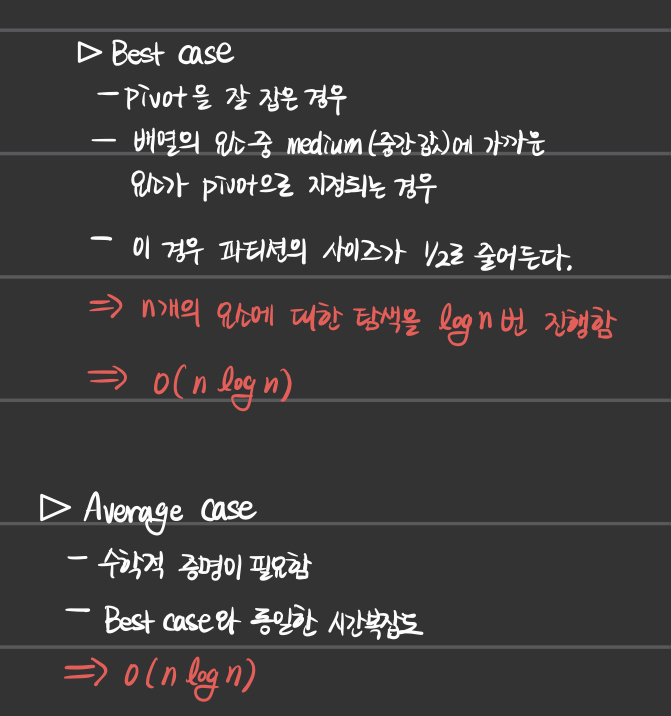 ▷ Best case
- Pivot을 잘 잡은 경우
- 배열의 요소 중 medium(중간값)에 가까운
요소가 pivot으로 지정되는 경우
- 이 경우 파티션의 사이즈가 1/2로 줄어든다.
⇒ n개의 요소에 대한 탐색을 log n 번 진행함
⇒ O(n log n)
▷ Average case
- 수학적 증명이 필요함
- Best case와 동일한 시간복잡도
⇒ O(n log n)